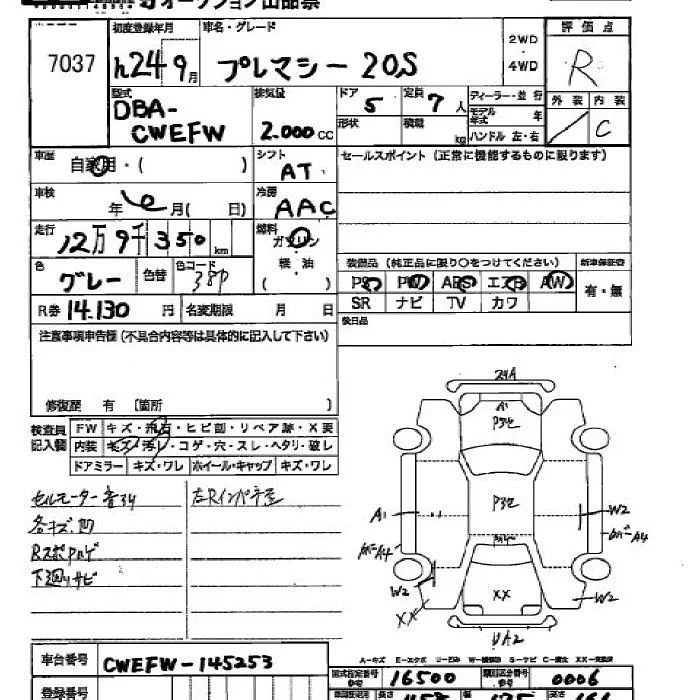 オークション出品票
7037
初度登録年月
h24 9月
車名・グレード
プレマシー 20S
2WD
・
4WD
評価点
R
型式
DBA-
CWEFW
排気量
2.000 CC
ドア
5
定員
7人
形状
積載
kg
ディーラー・並行
モデル年式 年
ハンドル 左・右
外装 内装
C
車歴
自家用・( )
シフト
AT
セールスポイント (正常に機能するものに限ります)
車検
年 月( 日)
冷房
AAC
走行
12万9千350km
燃料
ガソリン
軽・油
( )
色
グレー
色替
色コード
38P
装備品 (純正品に限り○をつけてください)
新車保証書
PS PW ABS エアB AW
SR ナビ TV カワ
有・無
R券 14.130 円
名変期限 月 日
後日品
注意事項申告欄 (不具合内容等は具体的に記入して下さい)
修復歴 有 〔箇所 〕
検査員
記入欄
FW キズ・飛石・ヒビ割・リペア跡・X要
内装 キズ・汚レ・コゲ・穴・スレ・ヘタリ・破レ
ドアミラー キズ・ワレ ホイール・キャップ キズ・ワレ
セルモーター音
各キズ.凹
下廻りサビ
左Rインパネ
A1
P3セ
P3セ
A1
W2
W2
W2
XX
XX
A-キズ E-エクボ
車台番号
CWEFW-145253
登録番号
型式指定番号
16500
類別区分番号
0006
長さ
幅
高さ